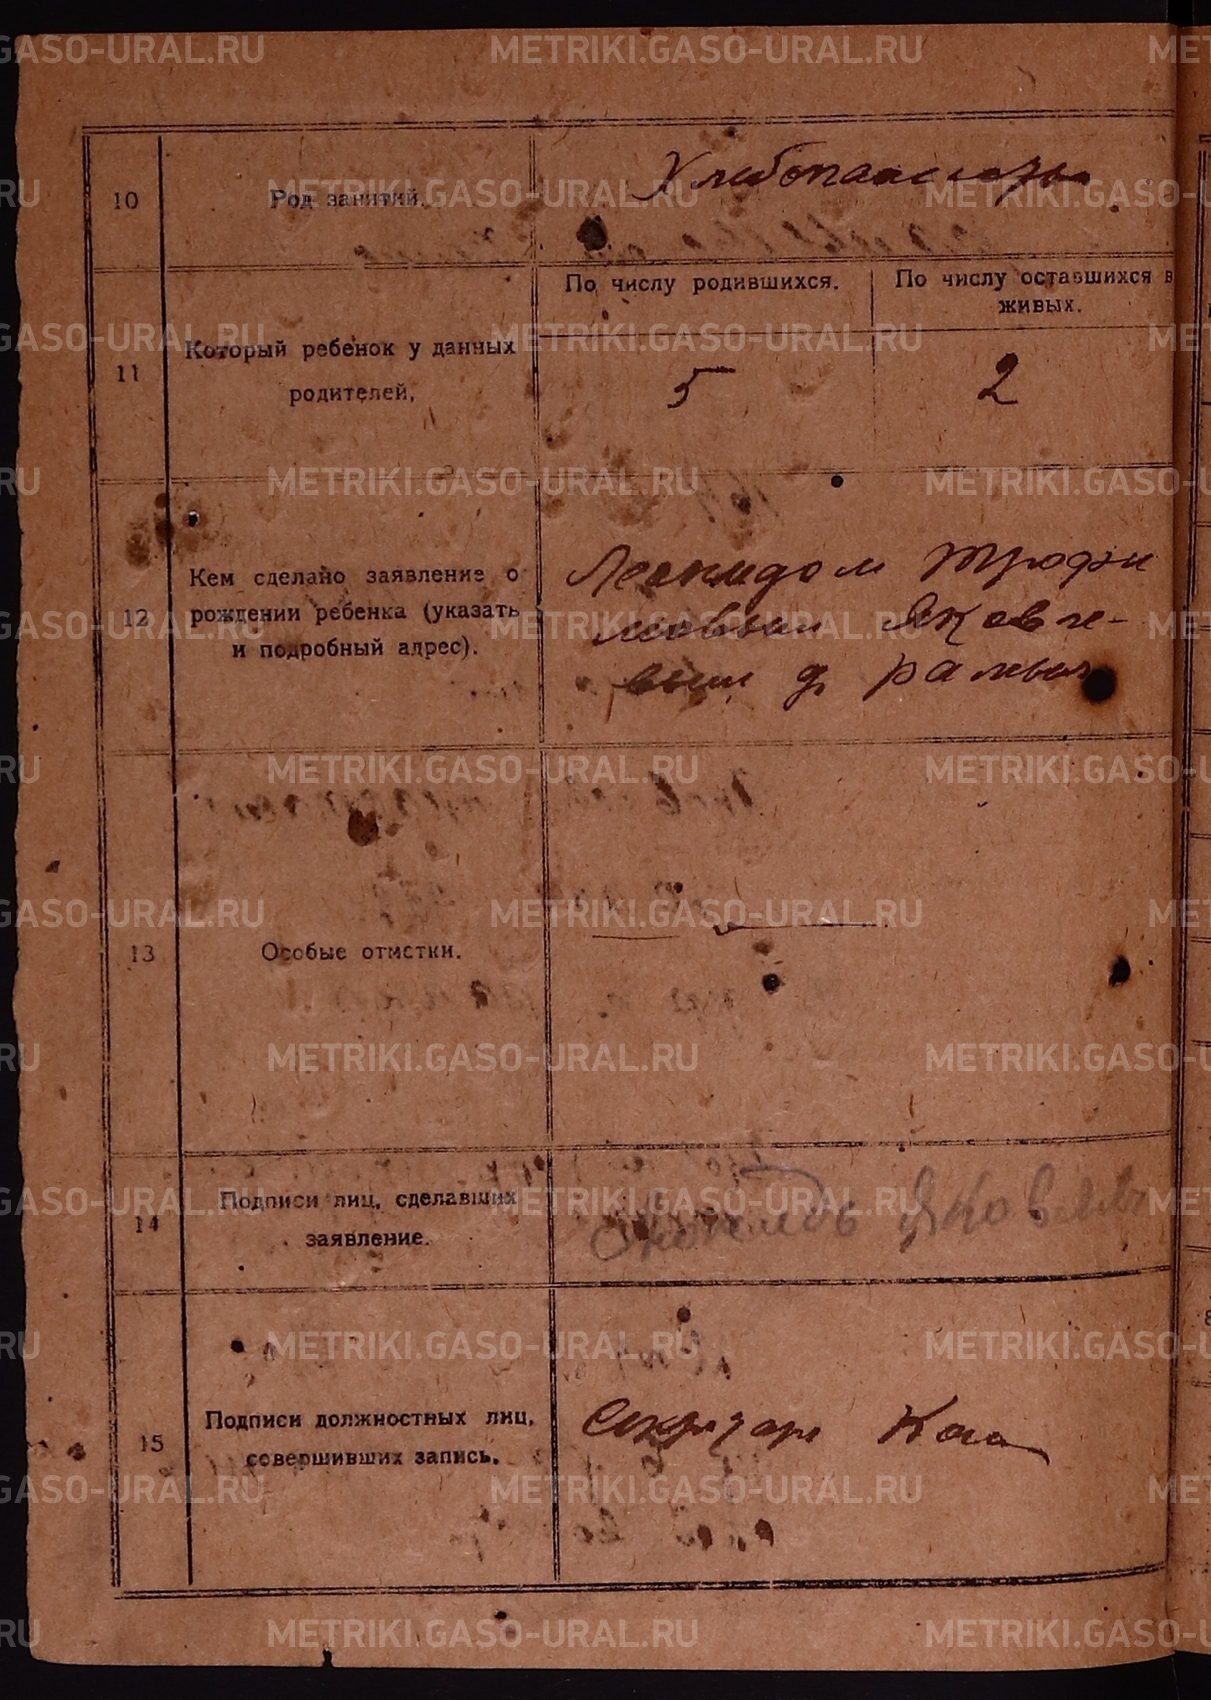 10
Род занятий.
Хлебопашество
По числу родившихся.
По числу оставшихся в
живых.
11
Который ребенок у данных
родителей.
5
2
12
Кем сделано заявление о
рождении ребенка (указать
и подробный адрес).
Леонидом Трофи
мовым Яковле-
вым д.
13
Особые отметки.
14
Подписи лиц, сделавших
заявление.
Яковлев
15
Подписи должностных лиц,
совершивших запись.
Секретарь
METRIKI.GASO-URAL.RU